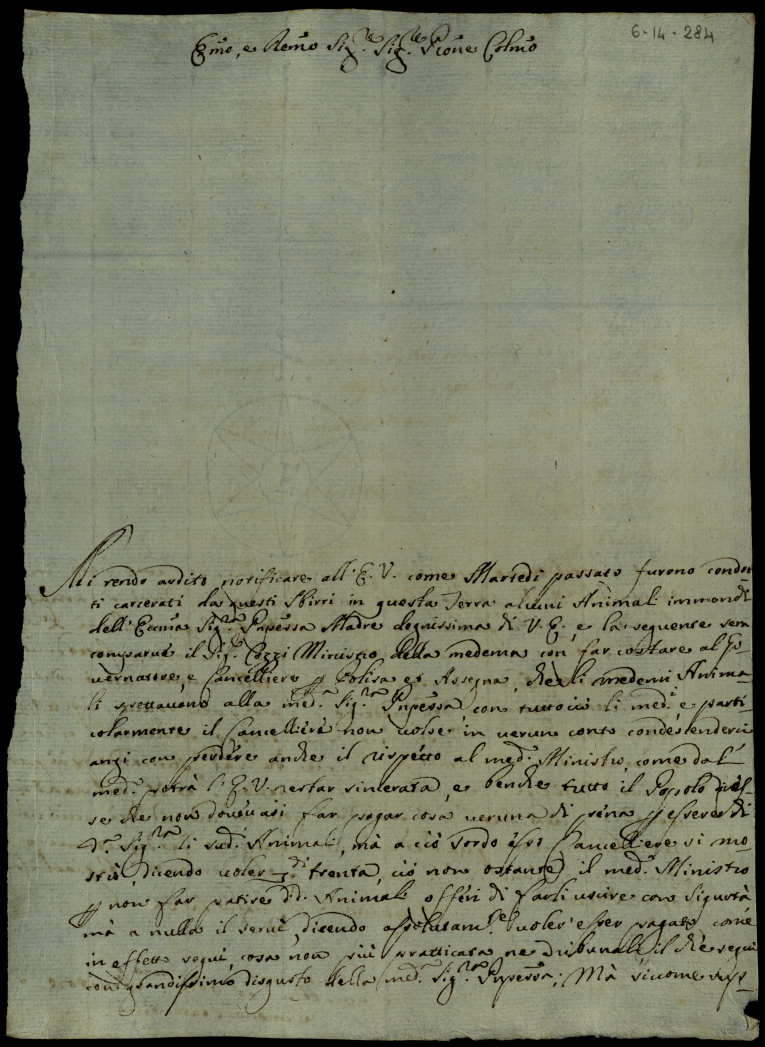 6-14-284
Emo, e Remo Sig.re Sig.re Prone Colmo
Mi rendo ardito notificare all'E. V. come Martedi passato furono condot-
ti carcerati da questi Sbirri in questa Terra alcuni Animali immondi
dell'Eccma Sig.ra Pnpessa Madre degnissima di V. E., e la seguente sera
comparve il Sig.r Cozzi Ministro della medema con far costare al Go-
vernatore, e Cancelliere p Polisa et Assegna, che li medemi Anima-
li spettavono alla med.a Sig.ra Pnpessa con tutto ciò li med.i e parti
colarmente il Cancelliere non volse in verun conto condescenderci
anzi con perdere anche il rispetto al med.o Ministro, come dal
med.o potrà l'E. V. restar sincerata, e benche tutto il Popolo dices-
se che non dovevasi far pagar cosa veruna di pena p essere di
d.a Sig.ra li sud.i Animali, mà a ciò sordo esso Cancelliere si mo-
strò, dicendo voler trenta, ciò non ostante il med.o Ministro
p non far patire d.i Animali offerì di farli uscire con Sigurtà
mà a nulla il servì, dicendo assolutam.te voler esser pagato come
in effetto seguì, cosa non più pratticata ne Tribunali, il che seguì
con grandissimo disgusto della med.a Sig.ra Pnpessa; Mà siccome